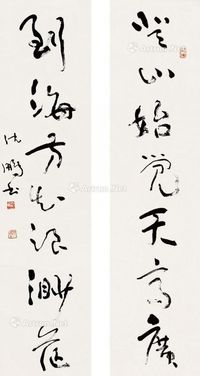 登山始觉天高广
到海方知浪渺茫
沈鹏书